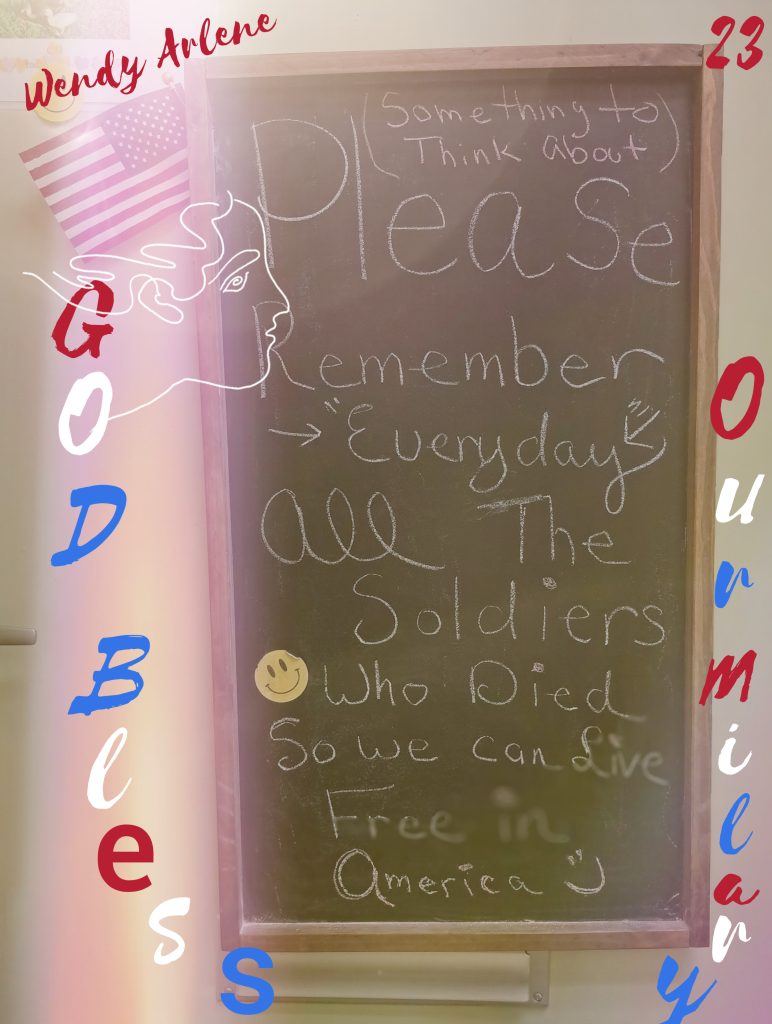 Wendy Arlene
23
(Something to
Think About)
Please
Remember
→ "Everyday"
All The
Soldiers
Who Died
So we can Live
Free in
America
GOD Bless
Our milary